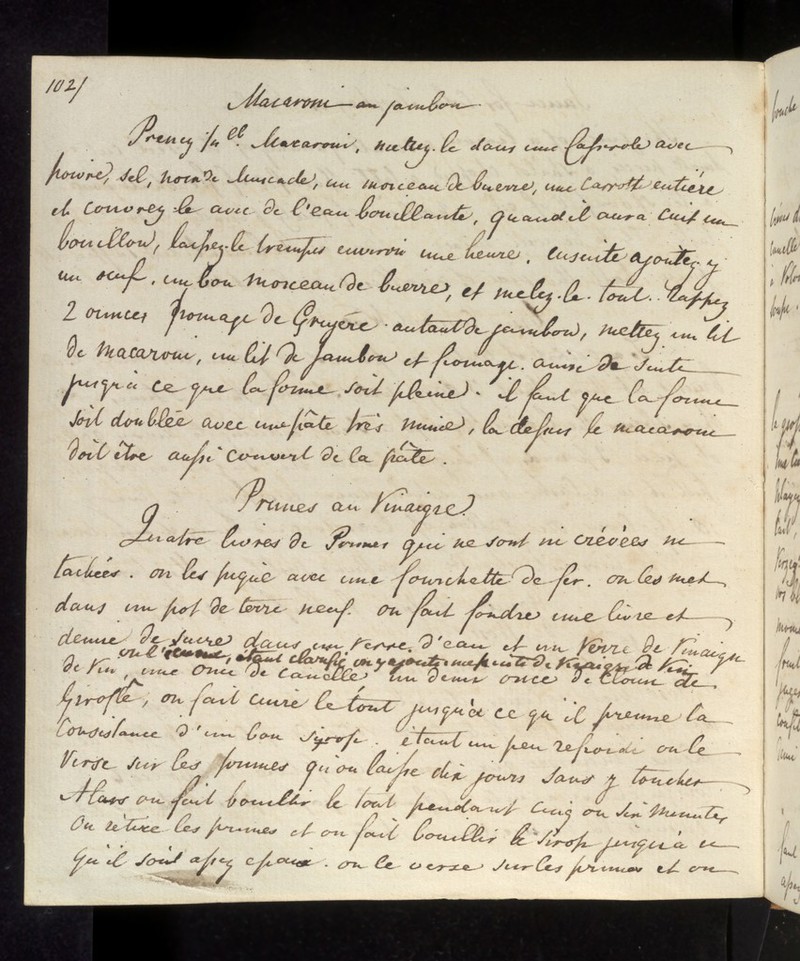 102/
Macaroni au jambon
Prenez Macaroni, mettez-le dans une Casserole avec
poivre, sel, noix de Muscade, un morceau de buerre, une Carrott entiére
et couvrez-le avec de l'eau bouillante, quand il aura cuit un
bouillon, laissez-le tremper environ une heure, ensuite ajoutez y
un oeuf, un bon morceau de buerre, et melez-le-tout. Rappez
2 ounces fromage de Gruyére autant de jambon, mettez un lit
de macaroni, un lit de Jambon et fromage. ainsi de suite
jusqu'a ce que la forme soit pleine. il faut que la forme
soit doublée avec une pâte très mince, la dessus le macaroni
doit être aussi couvert de la pâte.
Prunes au Vinaigre
Quatre livres de Prunes qui ne sont ni crévées ni
tachées. on les piqué avec une fourchette de fer. on les met
dans un pot de terre neuf. on fait fondre une livre et
demie de sucre dans un verre d'eau et un Verre de Vinaigre
on l'écume, étant clarifié on y ajoute une pinte de Vinaigre de Vin
de Vin, une once de canelle un demi once de Cloux de
Girofle, on fait cuire le tout jusqu'à ce qu'il prenne la
Consistance d'un bon sirop. étant un peu refroidi on le
Verse sur les prunes qu'on laisse dix jours sans y toucher
Alors on fait bouillir le tout pendant cinq ou six Minutes
On rétire les prunes et on fait bouillir le sirop jusqu'à ce
qu'il soit assez epais. on le verse sur les prunes et on